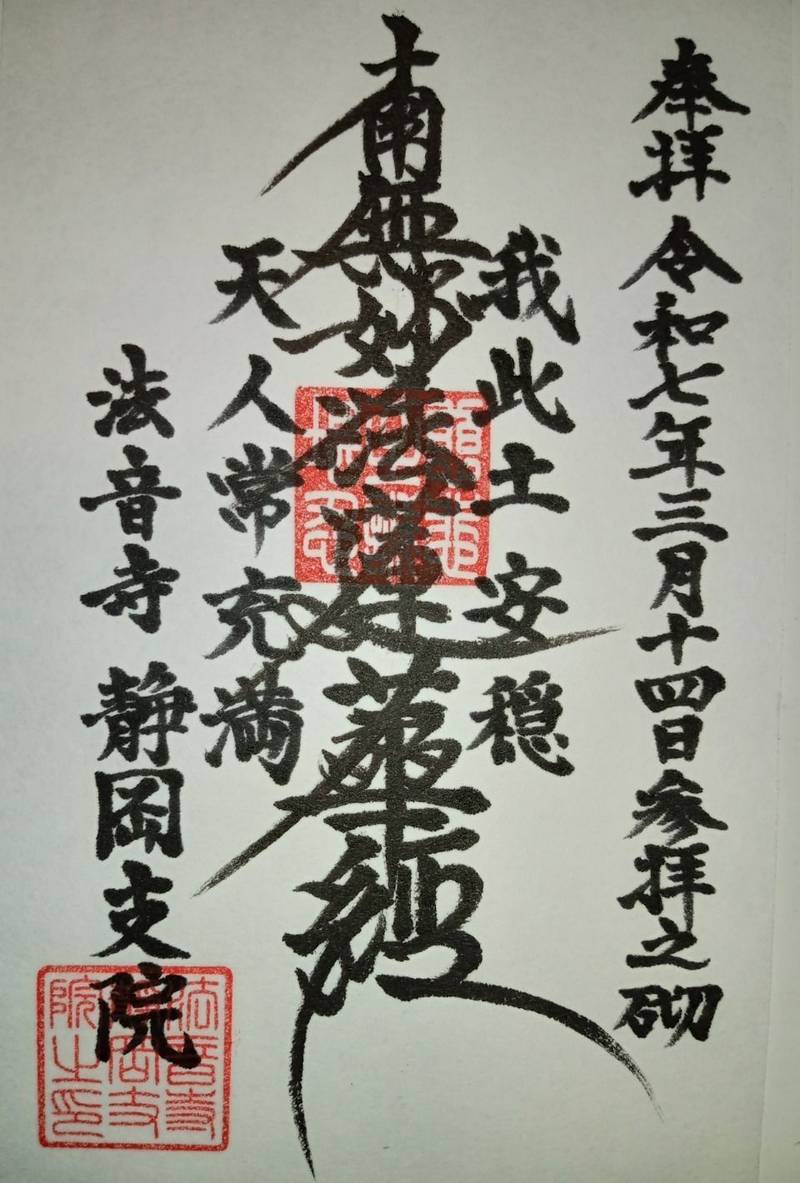 奉拝 令和七年三月十四日参拝之砌
我此土安穏
南無妙法蓮華経
天人常充満
法音寺 静岡支院
法音寺
静岡支
院之印